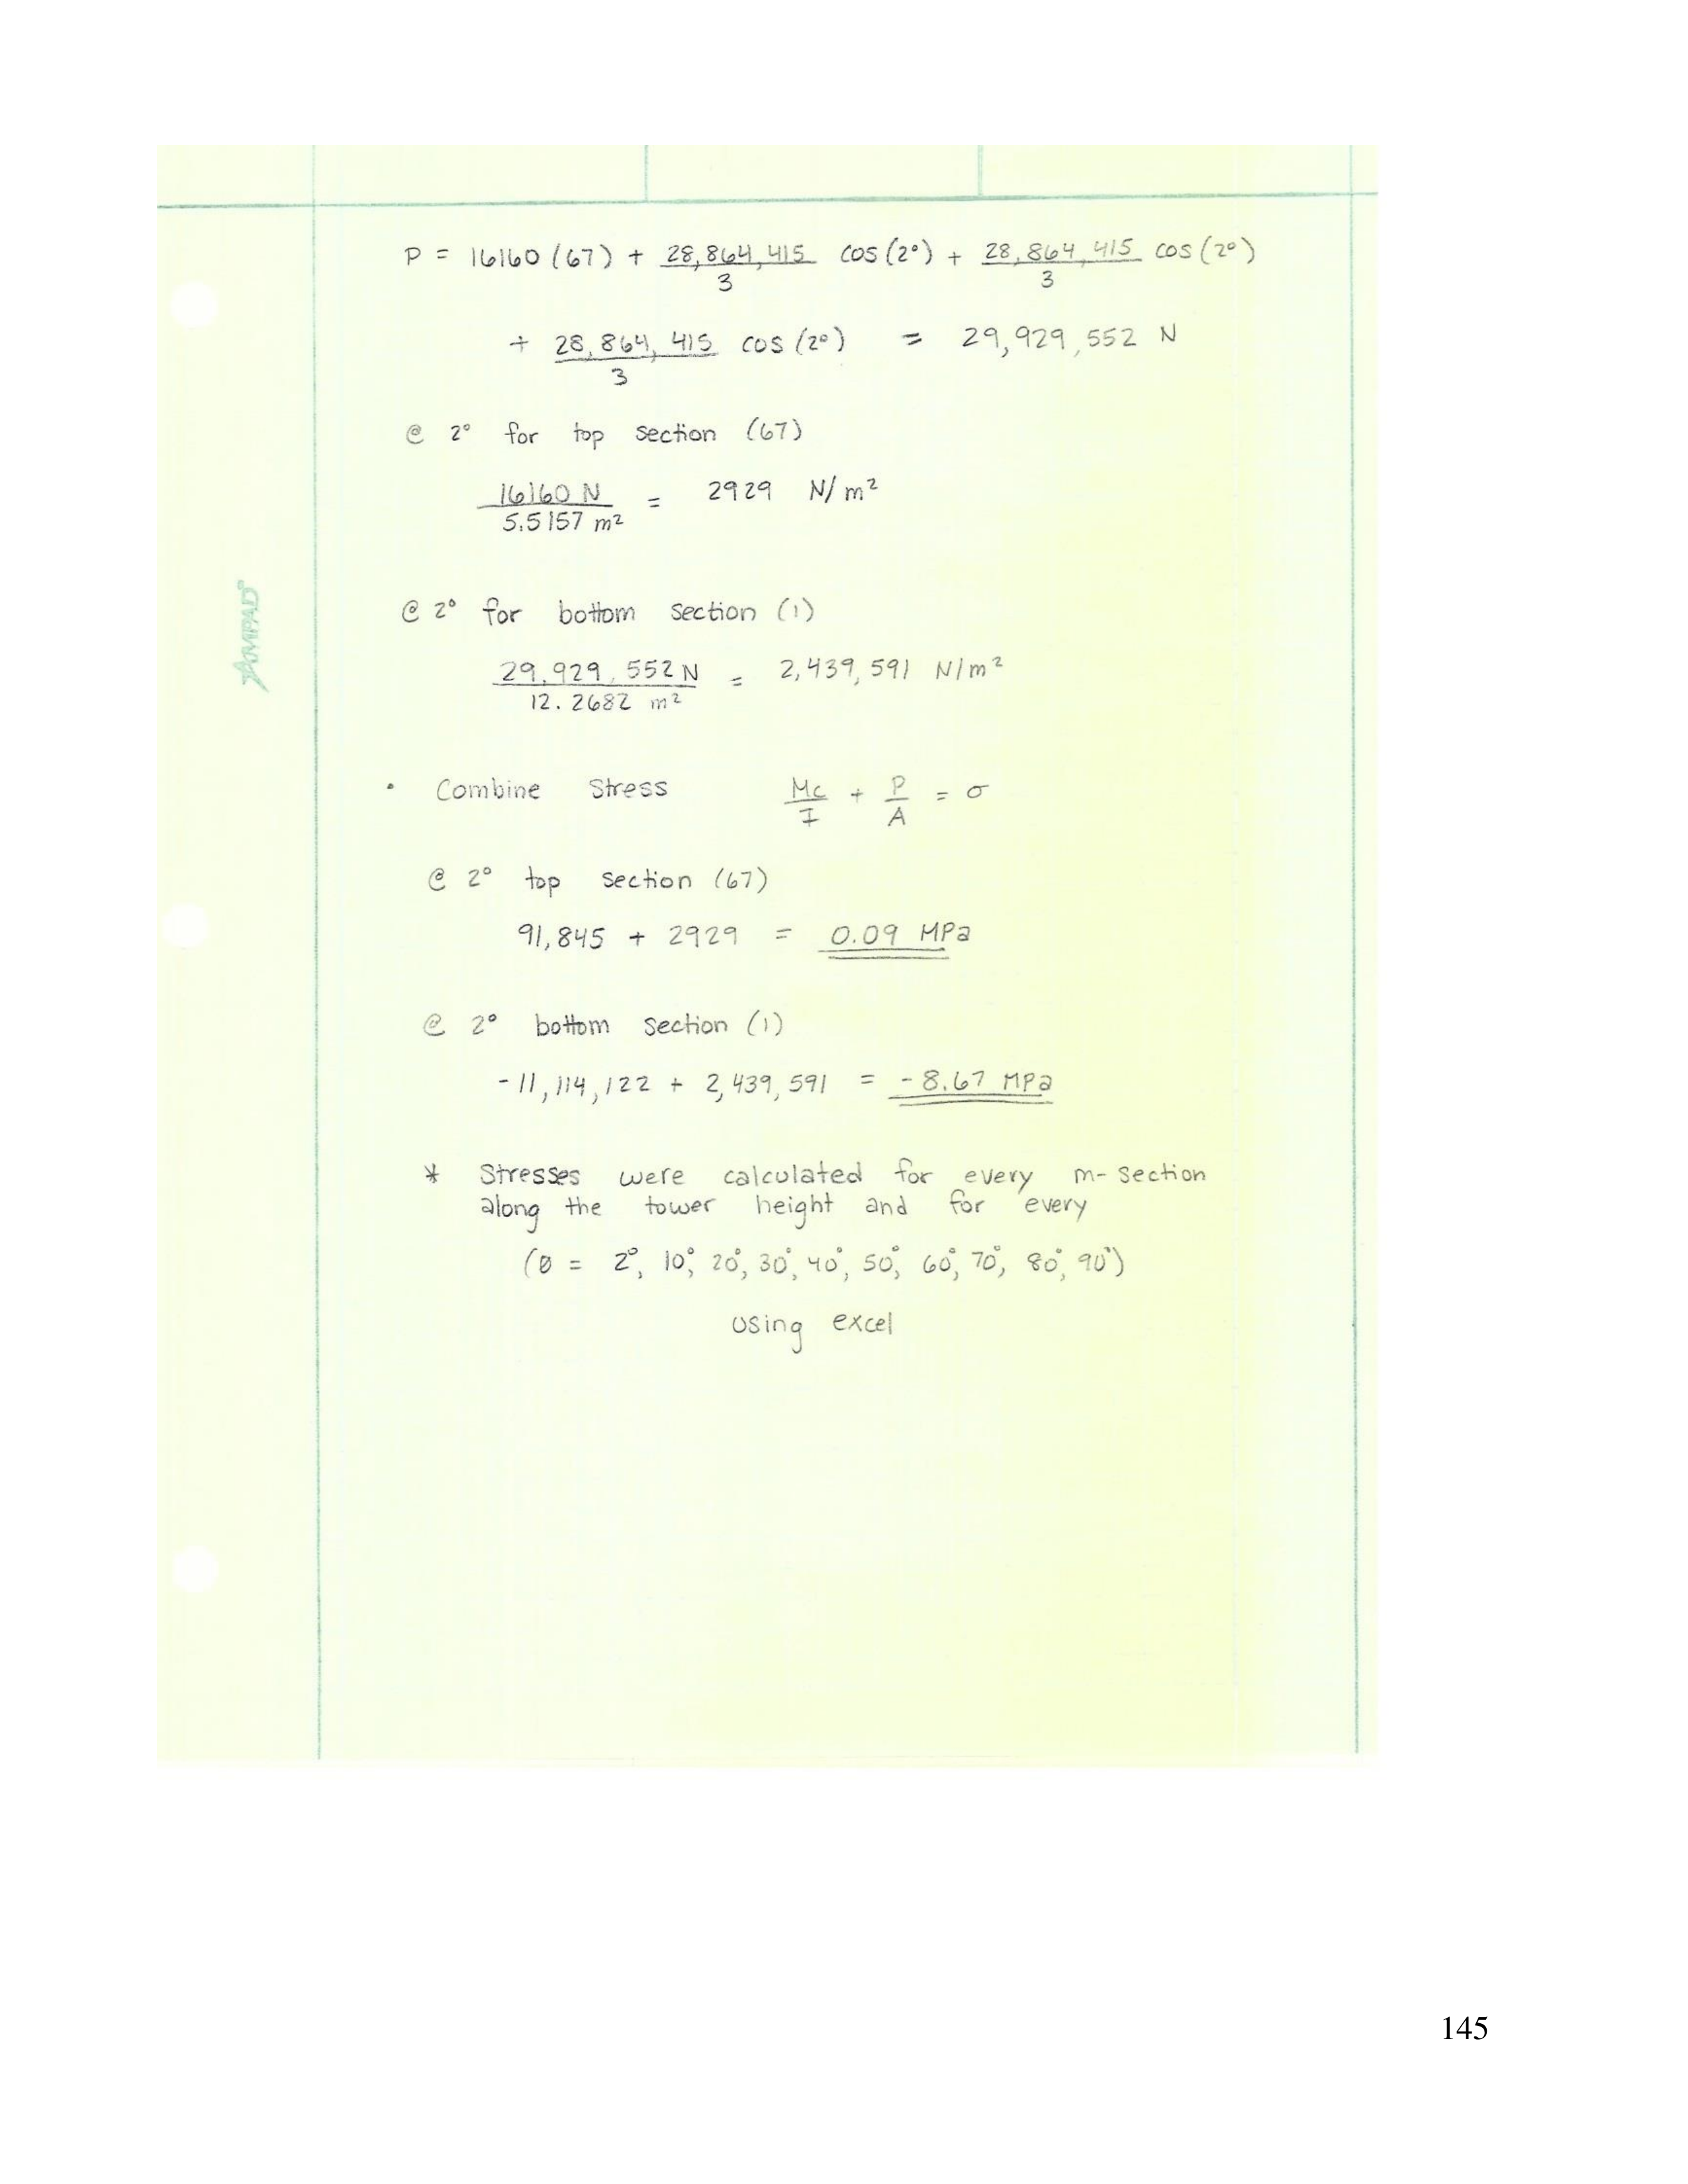 P = 16160 (67) + 28,864,415/3 cos (2°) + 28,864,415/3 cos (2°)
+ 28,864,415/3 cos (2°) = 29,929,552 N
@ 2° for top section (67)
16160 N / 5.5157 m² = 2929 N/m²
AMPAD
@ 2° for bottom section (1)
29,929,552 N / 12.2682 m² = 2,439,591 N/m²
• Combine Stress Mc/I + P/A = σ
@ 2° top section (67)
91,845 + 2929 = 0.09 MPa
@ 2° bottom section (1)
-11,114,122 + 2,439,591 = -8.67 MPa
* Stresses were calculated for every m-section
along the tower height and for every
(Ø = 2°, 10°, 20°, 30°, 40°, 50°, 60°, 70°, 80°, 90°)
using excel
145